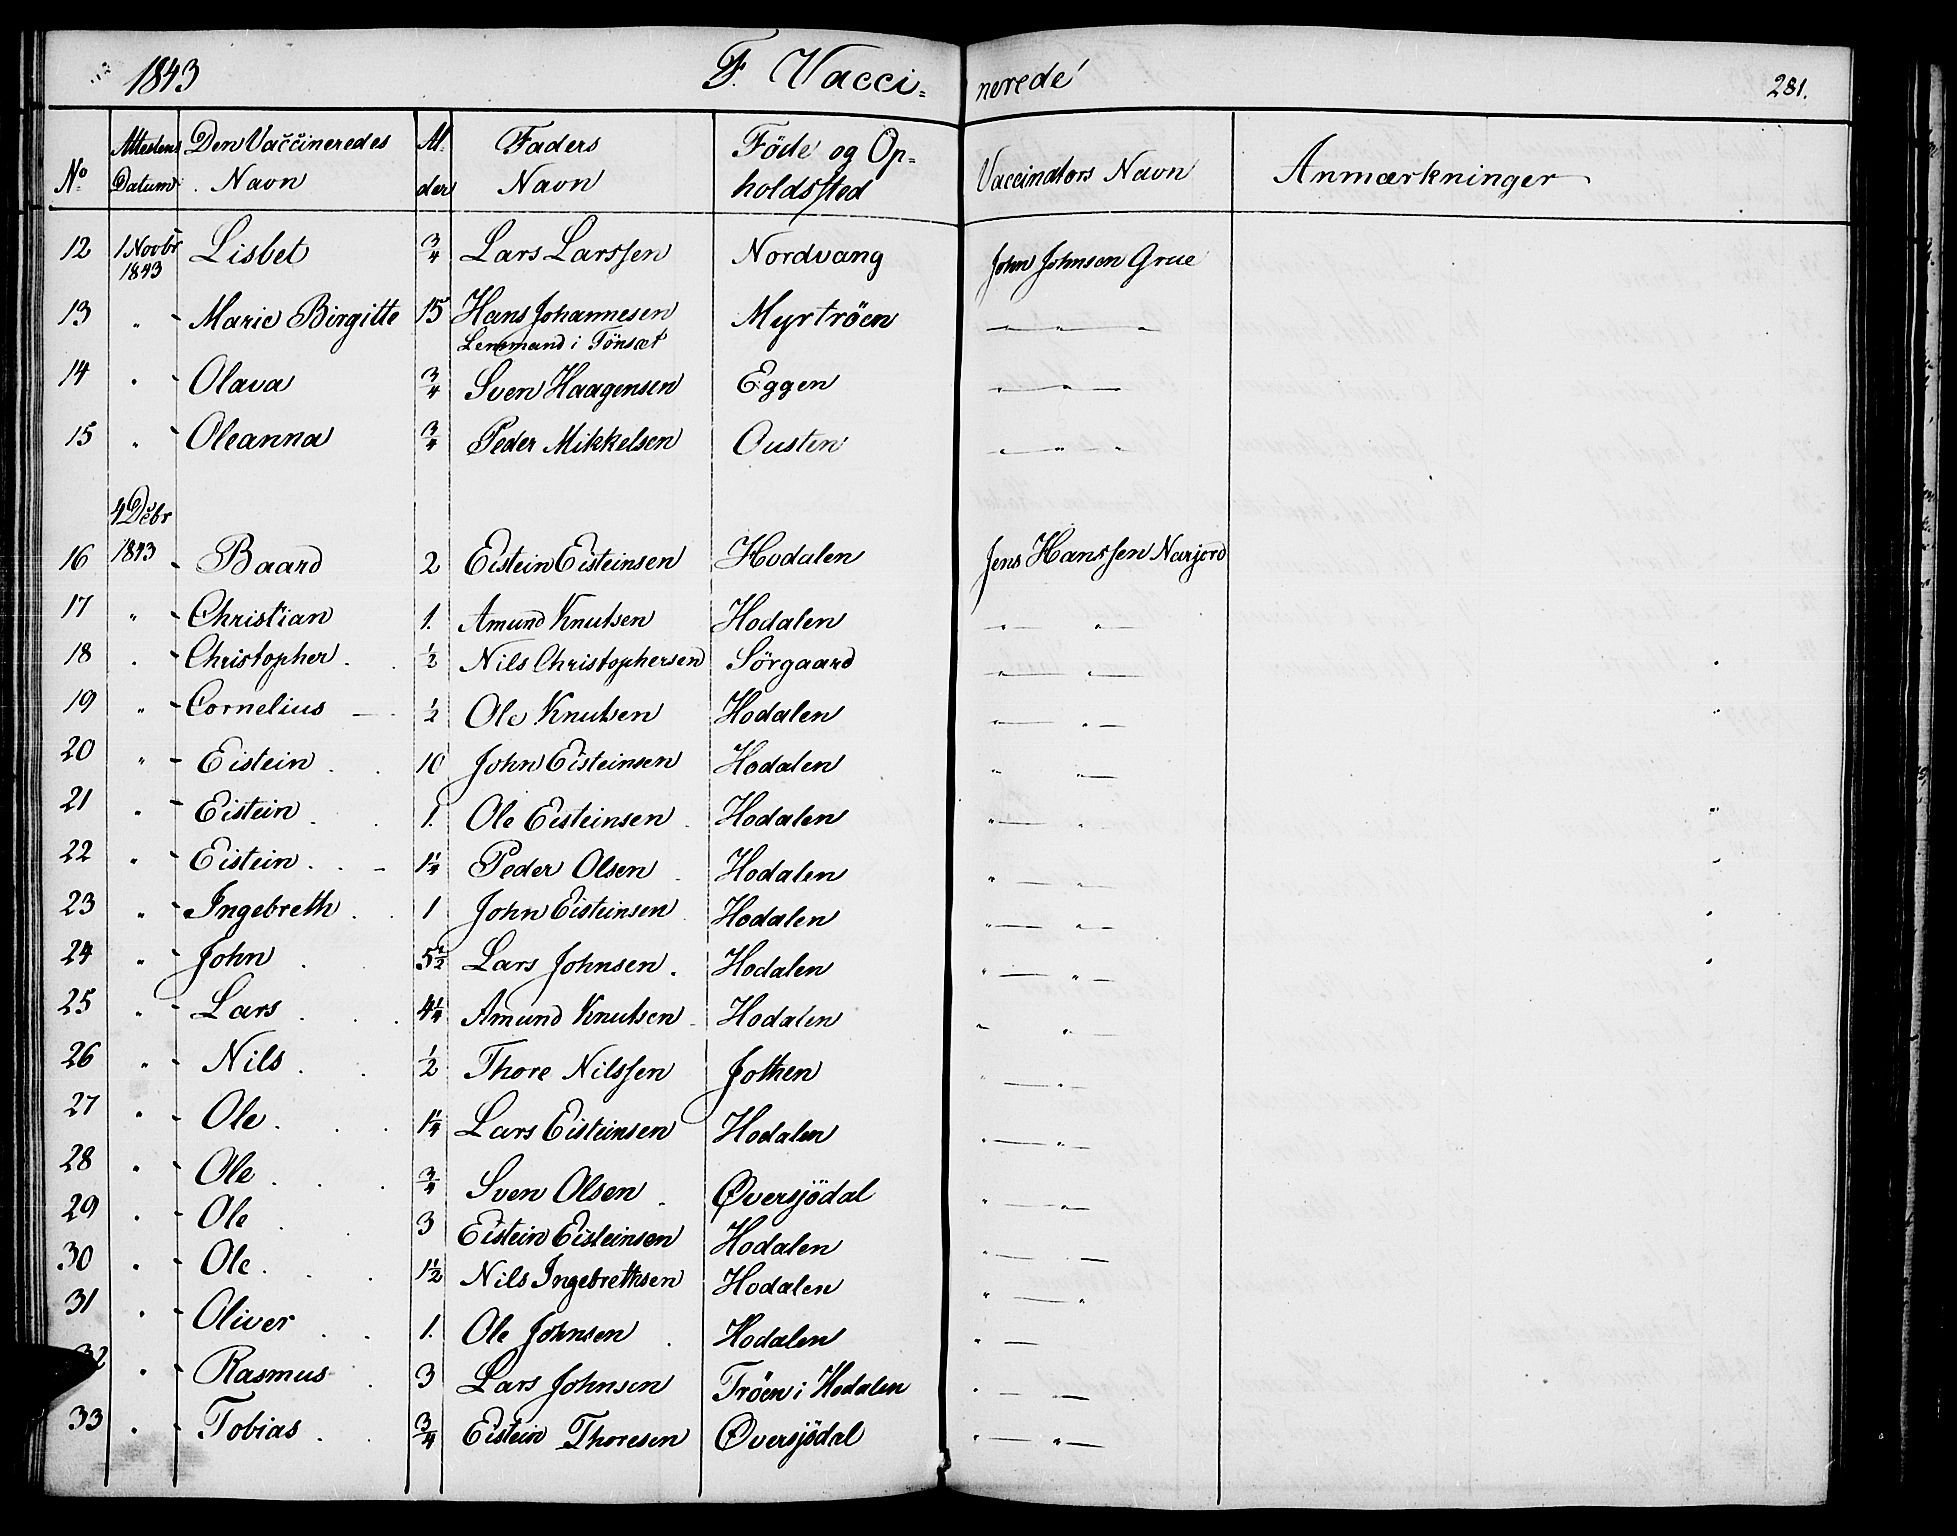 1843 F. Vacci= nerede 281.
No Attestens Datum Den Vaccineredes Navn Al- der Faders Navn Føde og Op= holdssted Vaccinators Navn Anmærkninger
12 1 Novbr 1843 Lisbet 3/4 Lars Larssen Nordvang John Johnsen Grue
13 " - Marie Birgitte 15 Hans Johannesen Myrtröen " — " — "
Lensmand i Tönset
14 " - Olava 3/4 Sven Haagensen Eggen " — " —
15 " - Oleanna 3/4 Peder Mikkelsen Ousten " — " — "
4 Decbr
16 1843 - Baard 2 Eistein Eisteinsen Hodalen Jens Hanssen Narjord
17 " - Christian 1. Amund Knutsen Hodalen " — " —
18 " - Christopher 1/2 Nils Christophersen Sörgaard " — " —
19 " - Cornelius 1/2 Ole Knutsen Hodalen " — " —
20 " - Eistein 10 John Eisteinsen Hodalen " " —
21 " - Eistein 1. Ole Eisteinsen Hodalen " — " —
22 " - Eistein 1 1/4 Peder Olsen Hodalen " — " —
23 " - Ingebreth 1 John Eisteinsen Hodalen " — " —
24 " - John 5 1/2 Lars Johnsen. Hodalen " — " —
25 " - Lars 4 1/4 Amund Knutsen Hodalen " — " —
26 " - Nils 1/2 Thore Nilssen Jothen " — " —
27 " - Ole 1 1/4 Lars Eisteinsen Hodalen " — " —
28 " - Ole 3/4 Sven Olsen Øversjödal " — " —
29 " - Ole 3 Eistein Eisteinsen Hodalen " — —
30 " - Ole 1 1/2 Nils Ingebrethsen Hodalen " — "
31 " - Oliver 1. Ole Johnsen Hodalen " —
32 " - Rasmus 3 Lars Johnsen Tröen i Hodalen " — " —
33 " - Tobias 3/4 Eistein Thoresen Øversjödal " — " —